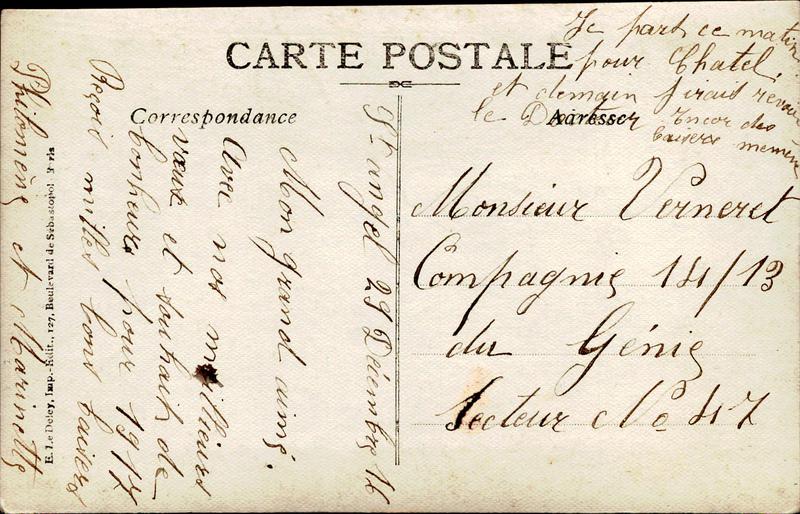 CARTE POSTALE
Je pars ce matin
pour Chatel,
et demain j'irais revoir
le Docteur Encor des
baisers mémène
Correspondance
Adresse
St angel 29 Décembre 16
Mon grand aimé.
Avec nos meilleurs
vœux et souhait de
bonheurs pour 1917
Reçois milles bons baisers
Philomène et Marinette
Monsieur Verneret
Compagnie 14/13
du Génie
Secteur No 47
E. Le Deley, Imp.-Edit., 127, Boulevard de Sébastopol, Paris